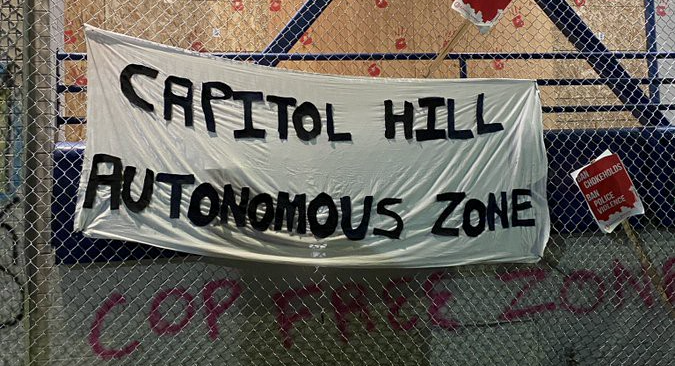 CAPITOL HILL
AUTONOMOUS ZONE
BAN
CHOKEHOLDS
BAN
POLICE
VIOLENCE
COP FREE ZONE